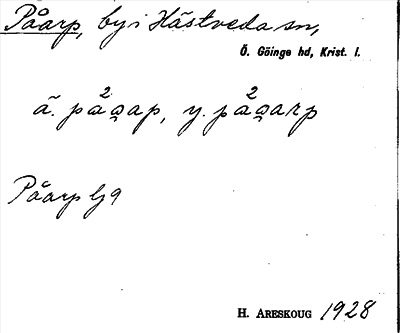 Påarp, by i Hästveda sn,
Ö. Göinge hd, Krist. l.
ä. påa̯ap, y. påa̯arp
Påarp G 9
H. ARESKOUG 1928